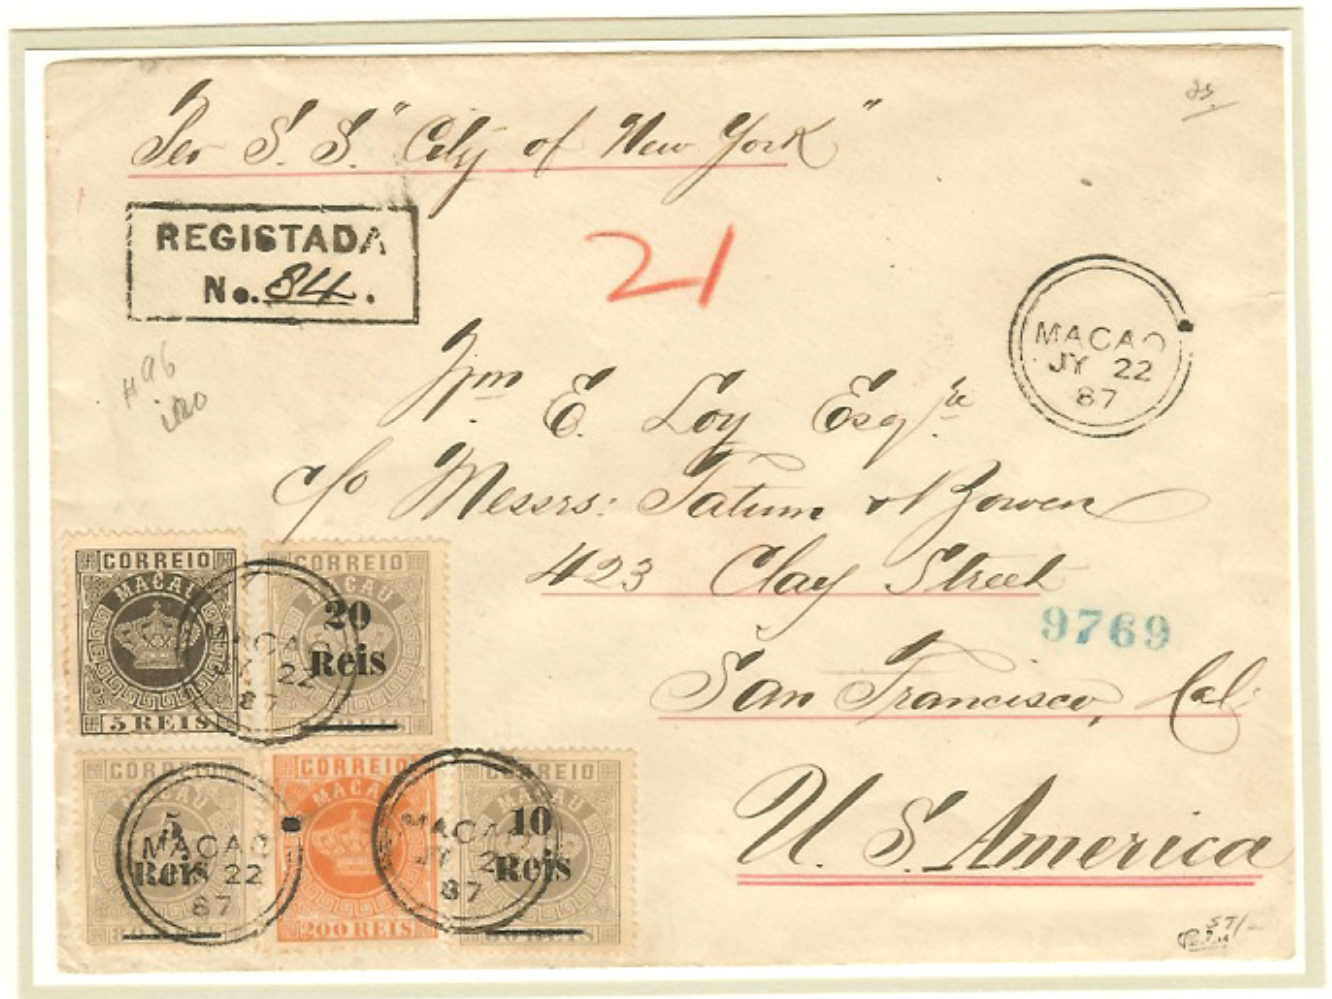 Per S. S. "City of New York"
REGISTADA
No. 84.
21
MACAO
JY 22
87
96
Wm E. Loy Esqre
c/o Messrs: Tatum & Bowen
423 Clay Street
9769
San Francisco, Cal:
U. S. America
CORREIO
MACAU
5 REIS
CORREIO
MACAU
20
Reis
MACAO
JY 22
87
CORREIO
MACAU
5
Reis
MACAO
22
87
CORREIO
MACAU
200 REIS
CORREIO
MACAU
10
Reis
80 REIS
MACAO
JY 2
87